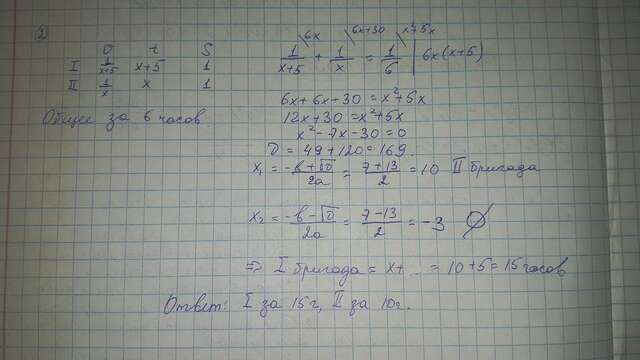 2
υ t S
I 1/x+5 x+5 1
II 1/x x 1
Общее за 6 часов
6x 6x+30 x²+5x
1/x+5 + 1/x = 1/6 | 6x(x+5)
6x+6x+30=x²+5x
12x+30=x²+5x
x²-7x-30=0
D=49+120=169
x₁=-b+√D/2a=7+13/2=10 II бригада
x₂=-b-√D/2a=7-13/2=-3 ∅
=> I бригада = x+... = 10+5=15 часов
Ответ: I за 15ч, II за 10ч.